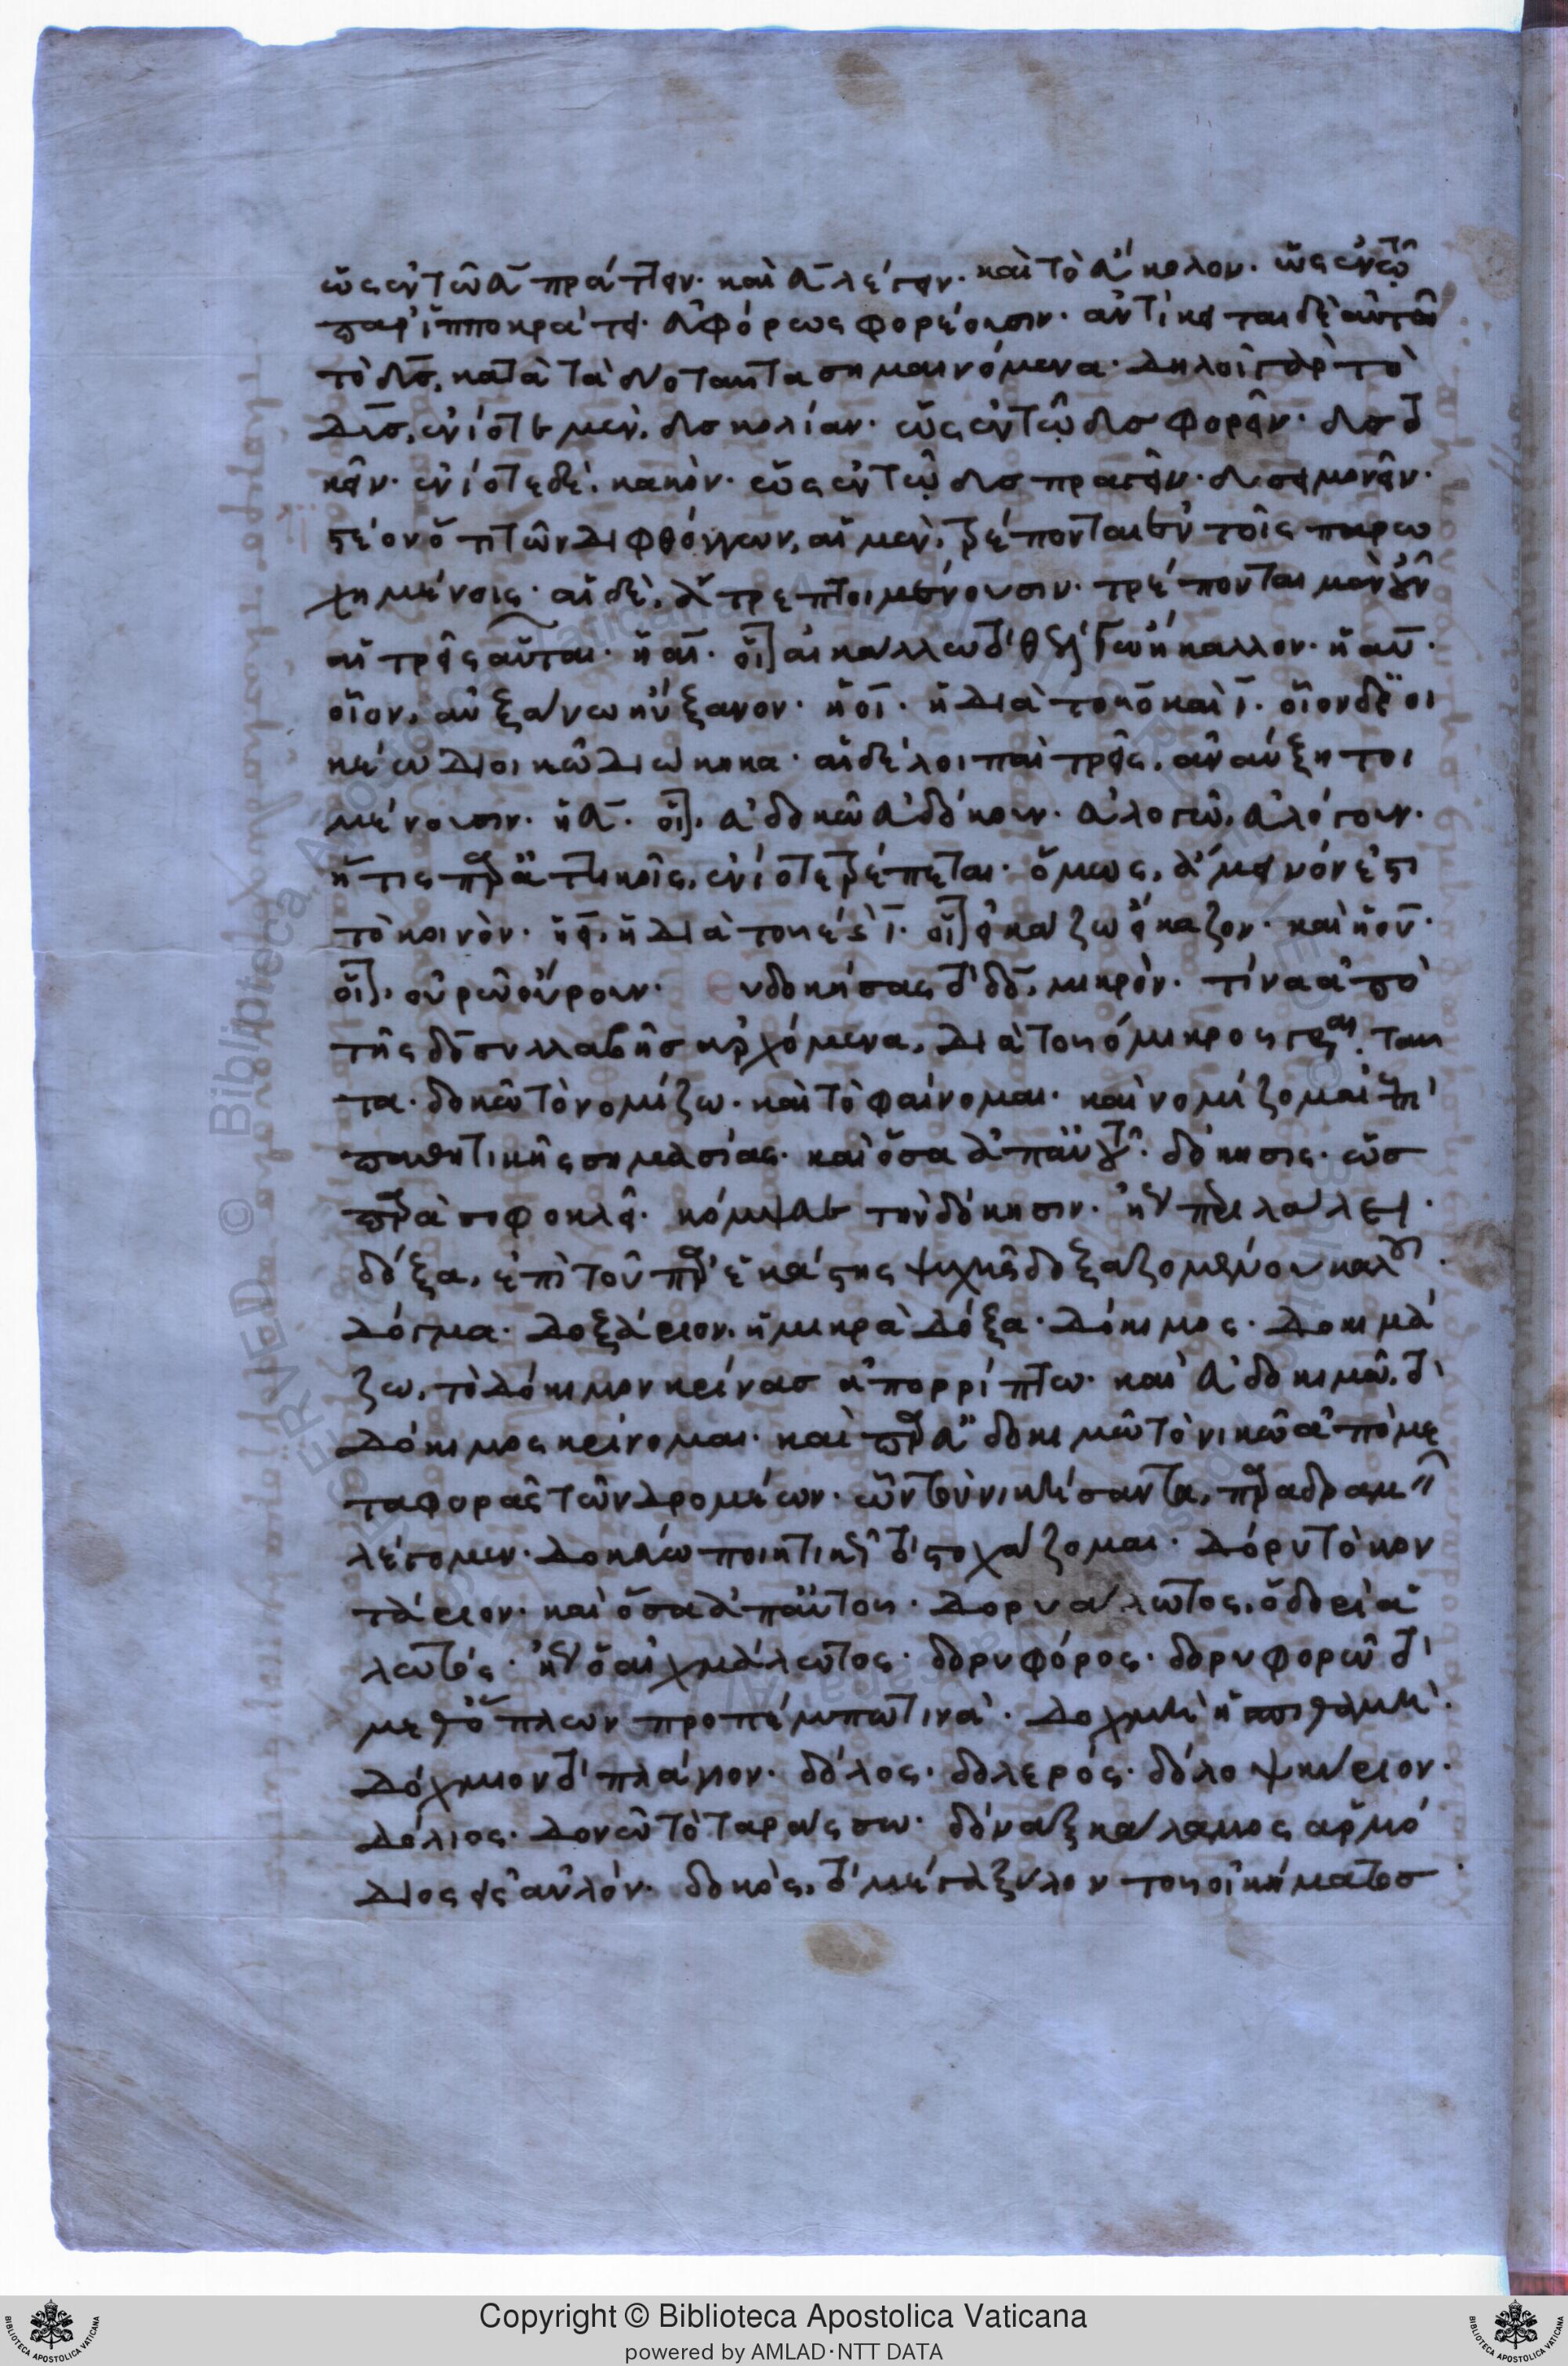 ὡς ἐν τῷ ᾱ πράττειν· καὶ ᾱ λέγειν· καὶ τὸ ἄκολον· ὡς ἐν τῷ
παρ' ἱπποκράτει· ἀφόρως φορέουσιν· ἀντίκειται δὲ αὐτῶ
τὸ δυ̅σ̅, κατὰ τὰ δύο ταῦτα σημαινόμενα· δηλοῖ γὰρ τὸ
δυ̅σ̅, ἐνίοτε μὲν, δυσκολίαν· ὡς ἐν τῷ δυσφορεῖν· δυστ
κεῖν· ἐνίοτε δὲ, κακόν· ὡς ἐν τῷ δυσπραγεῖν· δυσημονεῖν·
στέον ὅτι τῶν διφθόγγων, αἱ μὲν, τρέπονται ἐν τοῖς παρω
χημένοις· αἱ δὲ, ἄτρεπτοι μένουσιν· τρέπονται μὲν οὖν
αἱ τρεῖς αὗται· ἡ αι̅· ἡ αυ̅·
οἷον, αὐξάνω ηὔξανον· ἡ οι̅· ἡ διὰ τοῦ ο̅ καὶ ι̅· οἷον δὲ οἰ
κέω διοικῶ διώκηκα· αἱ δὲ λοιπαὶ τρεῖς, ἀναύξητοι
μένουσιν· ἡ ᾱ· οἷον, ἀδοκῶ ἀδόκουν· ἀλογῶ, ἀλόγουν·
ἥτις παρὰ ἀττικοῖς, ἐνίοτε τρέπεται· ὅμως, ἄμεινόν ἐστι
τὸ κοινόν· ἡ ει̅, ἡ διὰ τοῦ ε̅ καὶ ι̅· οἷον εἰκάζω εἴκαζον· καὶ ἡ ου̅·
οἷον, οὐρῶ οὔρουν· ευδοκήσας τὸ δο̅, μικρὸν· τίνα ἀπὸ
τῆς δο̅ συλλαβῆς ἀρχόμενα, διὰ τοῦ ὀμικρο γραφεται· ταῦ
τα· δοκῶ τὸ νομίζω· καὶ τὸ φαίνομαι· καὶ νομίζομαι ἐπὶ
παθητικῆς σημασίας· καὶ ὅσα ἀπ' αὐτοῦ· δόκησις· ὡς
παρὰ σοφοκλεῖ· κόμψευε τὴν δόκησιν·
δόξα, ἐπὶ τοῦ παρ' ἑκάστης ψυχῆς δοξαζομένου καλοῦ·
δόγμα· δοξάριον, ἡ μικρὰ δόξα· δόκιμος· δοκιμά
ζω, τὸ δόκιμον κρίνας ἀπορρίπτω· καὶ ἀδοκιμῶ, τὸ
δόκιμος κρίνομαι· καὶ παρευδοκιμῶ τὸ νικῶ ἀπὸ με
ταφορᾶς τῶν δρομέων· ὧν τὸν νικήσαντα, παραδραμεῖν
λέγομεν· δοκάω ποιητικῶς τὸ στοχάζομαι· δόρυ τὸ κον
τάριον· καὶ ὅσα ἀπ' αὐτοῦ· δορυάλωτος, ὁ δοριά
λωτος· ἤγουν ὁ αἰχμάλωτος· δορυφόρος· δορυφορῶ τὸ
μεθ' ὅπλων προπέμπω τινά· δοχμὴ ἡ σπιθαμή·
δόχμιον τὸ πλάγιον· δόλος· δολερός· δόλο
δόλιος· δονῶ τὸ ταράσσω· δόναξ κάλαμος ἁρμό
διος εἰς αὐλόν· δοκός, τὸ μέγα ξύλον τοῦ οἰκήματος
Copyright © Biblioteca Apostolica Vaticana
powered by AMLAD·NTT DATA